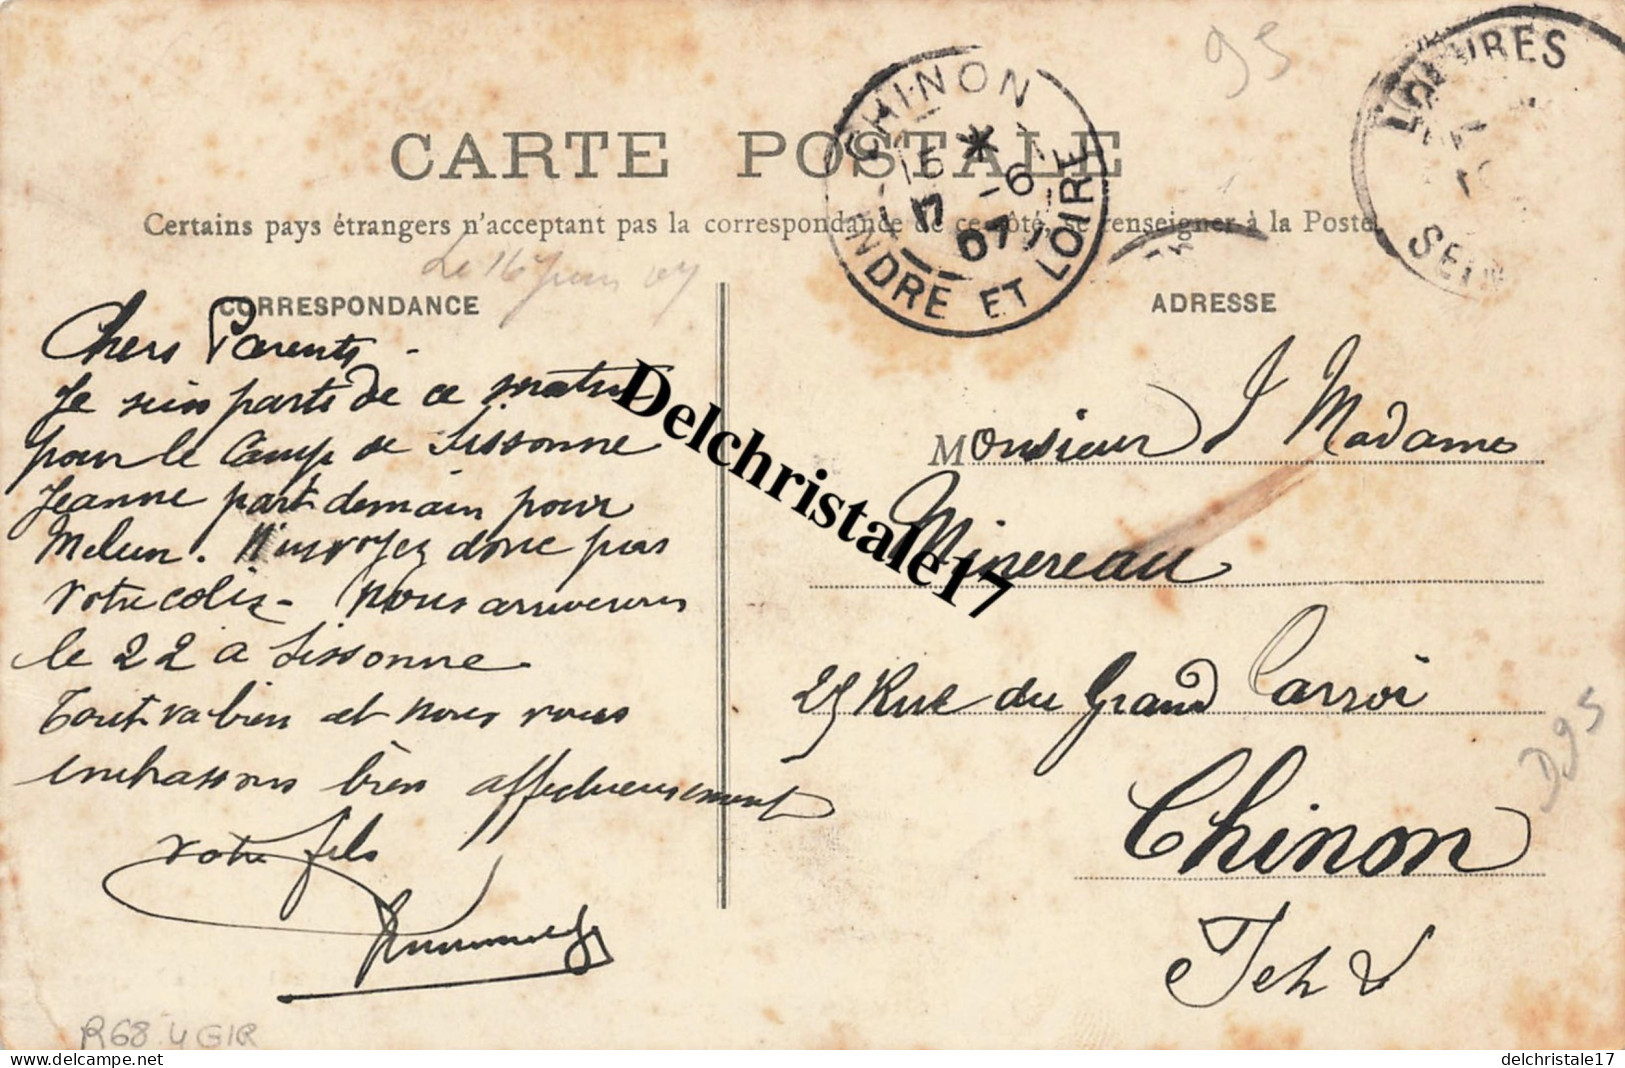 95
CARTE POSTALE
Certains pays étrangers n'acceptant pas la correspondance de ce côté, se renseigner à la Poste.
CHINON
15 * 6
17 07
INDRE ET LOIRE
LOUVRES
SEINE
Le 16 juin 07
CORRESPONDANCE
Chers Parents -
Je suis parti de ce matin
pour le Camp de Sissonne
Jeanne part demain pour
Melun. N'envoyez donc pas
votre colis - Nous arriverons
le 22 a Sissonne.
Tout va bien et nous vous
embrassons bien affectueusement
votre fils
ADRESSE
Monsieur & Madame
Minereau
25 Rue du Grand Carroi
Chinon
I et L
D95
R68 4 GIR
Delchristale17
delchristale17